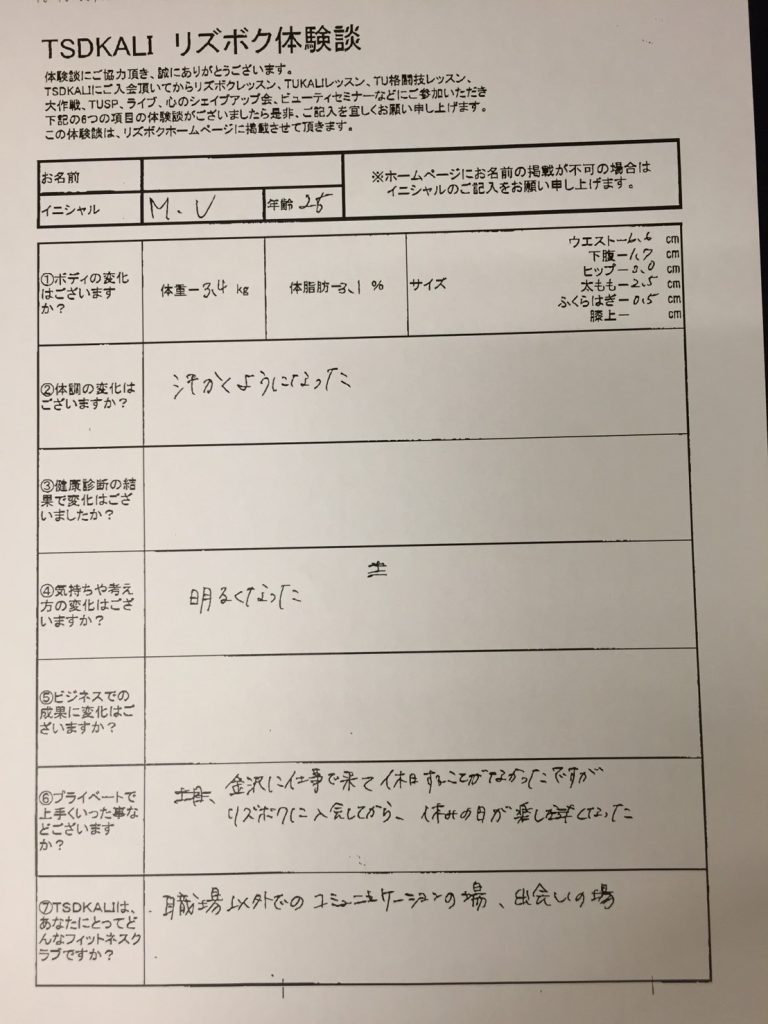 TSDKALI リズボク体験談
体験談にご協力頂き、誠にありがとうございます。
TSDKALIにご入会頂いてからリズボクレッスン、TUKALIレッスン、TU格闘技レッスン、
大作戦、TUSP、ライブ、心のシェイプアップ会、ビューティセミナーなどにご参加いただき
下記の6つの項目の体験談がございましたら是非、ご記入を宜しくお願い申し上げます。
この体験談は、リズボクホームページに掲載させて頂きます。
お名前
※ホームページにお名前の掲載が不可の場合は
イニシャルのご記入をお願い申し上げます。
イニシャル M.U 年齢
①ボディの変化
はございます
か?
体重ー3.4 kg
体脂肪ー3.1 %
サイズ
ウエストー cm
下腹ー1.7 cm
ヒップー3.0 cm
太ももー2.5 cm
ふくらはぎー0.5 cm
膝上ー cm
②体調の変化は
ございますか?
汗かくようになった
③健康診断の結
果で変化はござ
いましたか?
④気持ちや考え
方の変化はござ
いますか?
明るくなった
⑤ビジネスでの
成果に変化はご
ざいますか?
⑥プライベートで
上手くいった事な
どございます
か?
金沢に仕事で来て休日することがなかったですが
リズボクに入会してから、休みの日が楽しくなった
⑦TSDKALIは、
あなたにとってど
んなフィットネスク
ラブですか?
職場以外でのコミュニュケーションの場、出会いの場